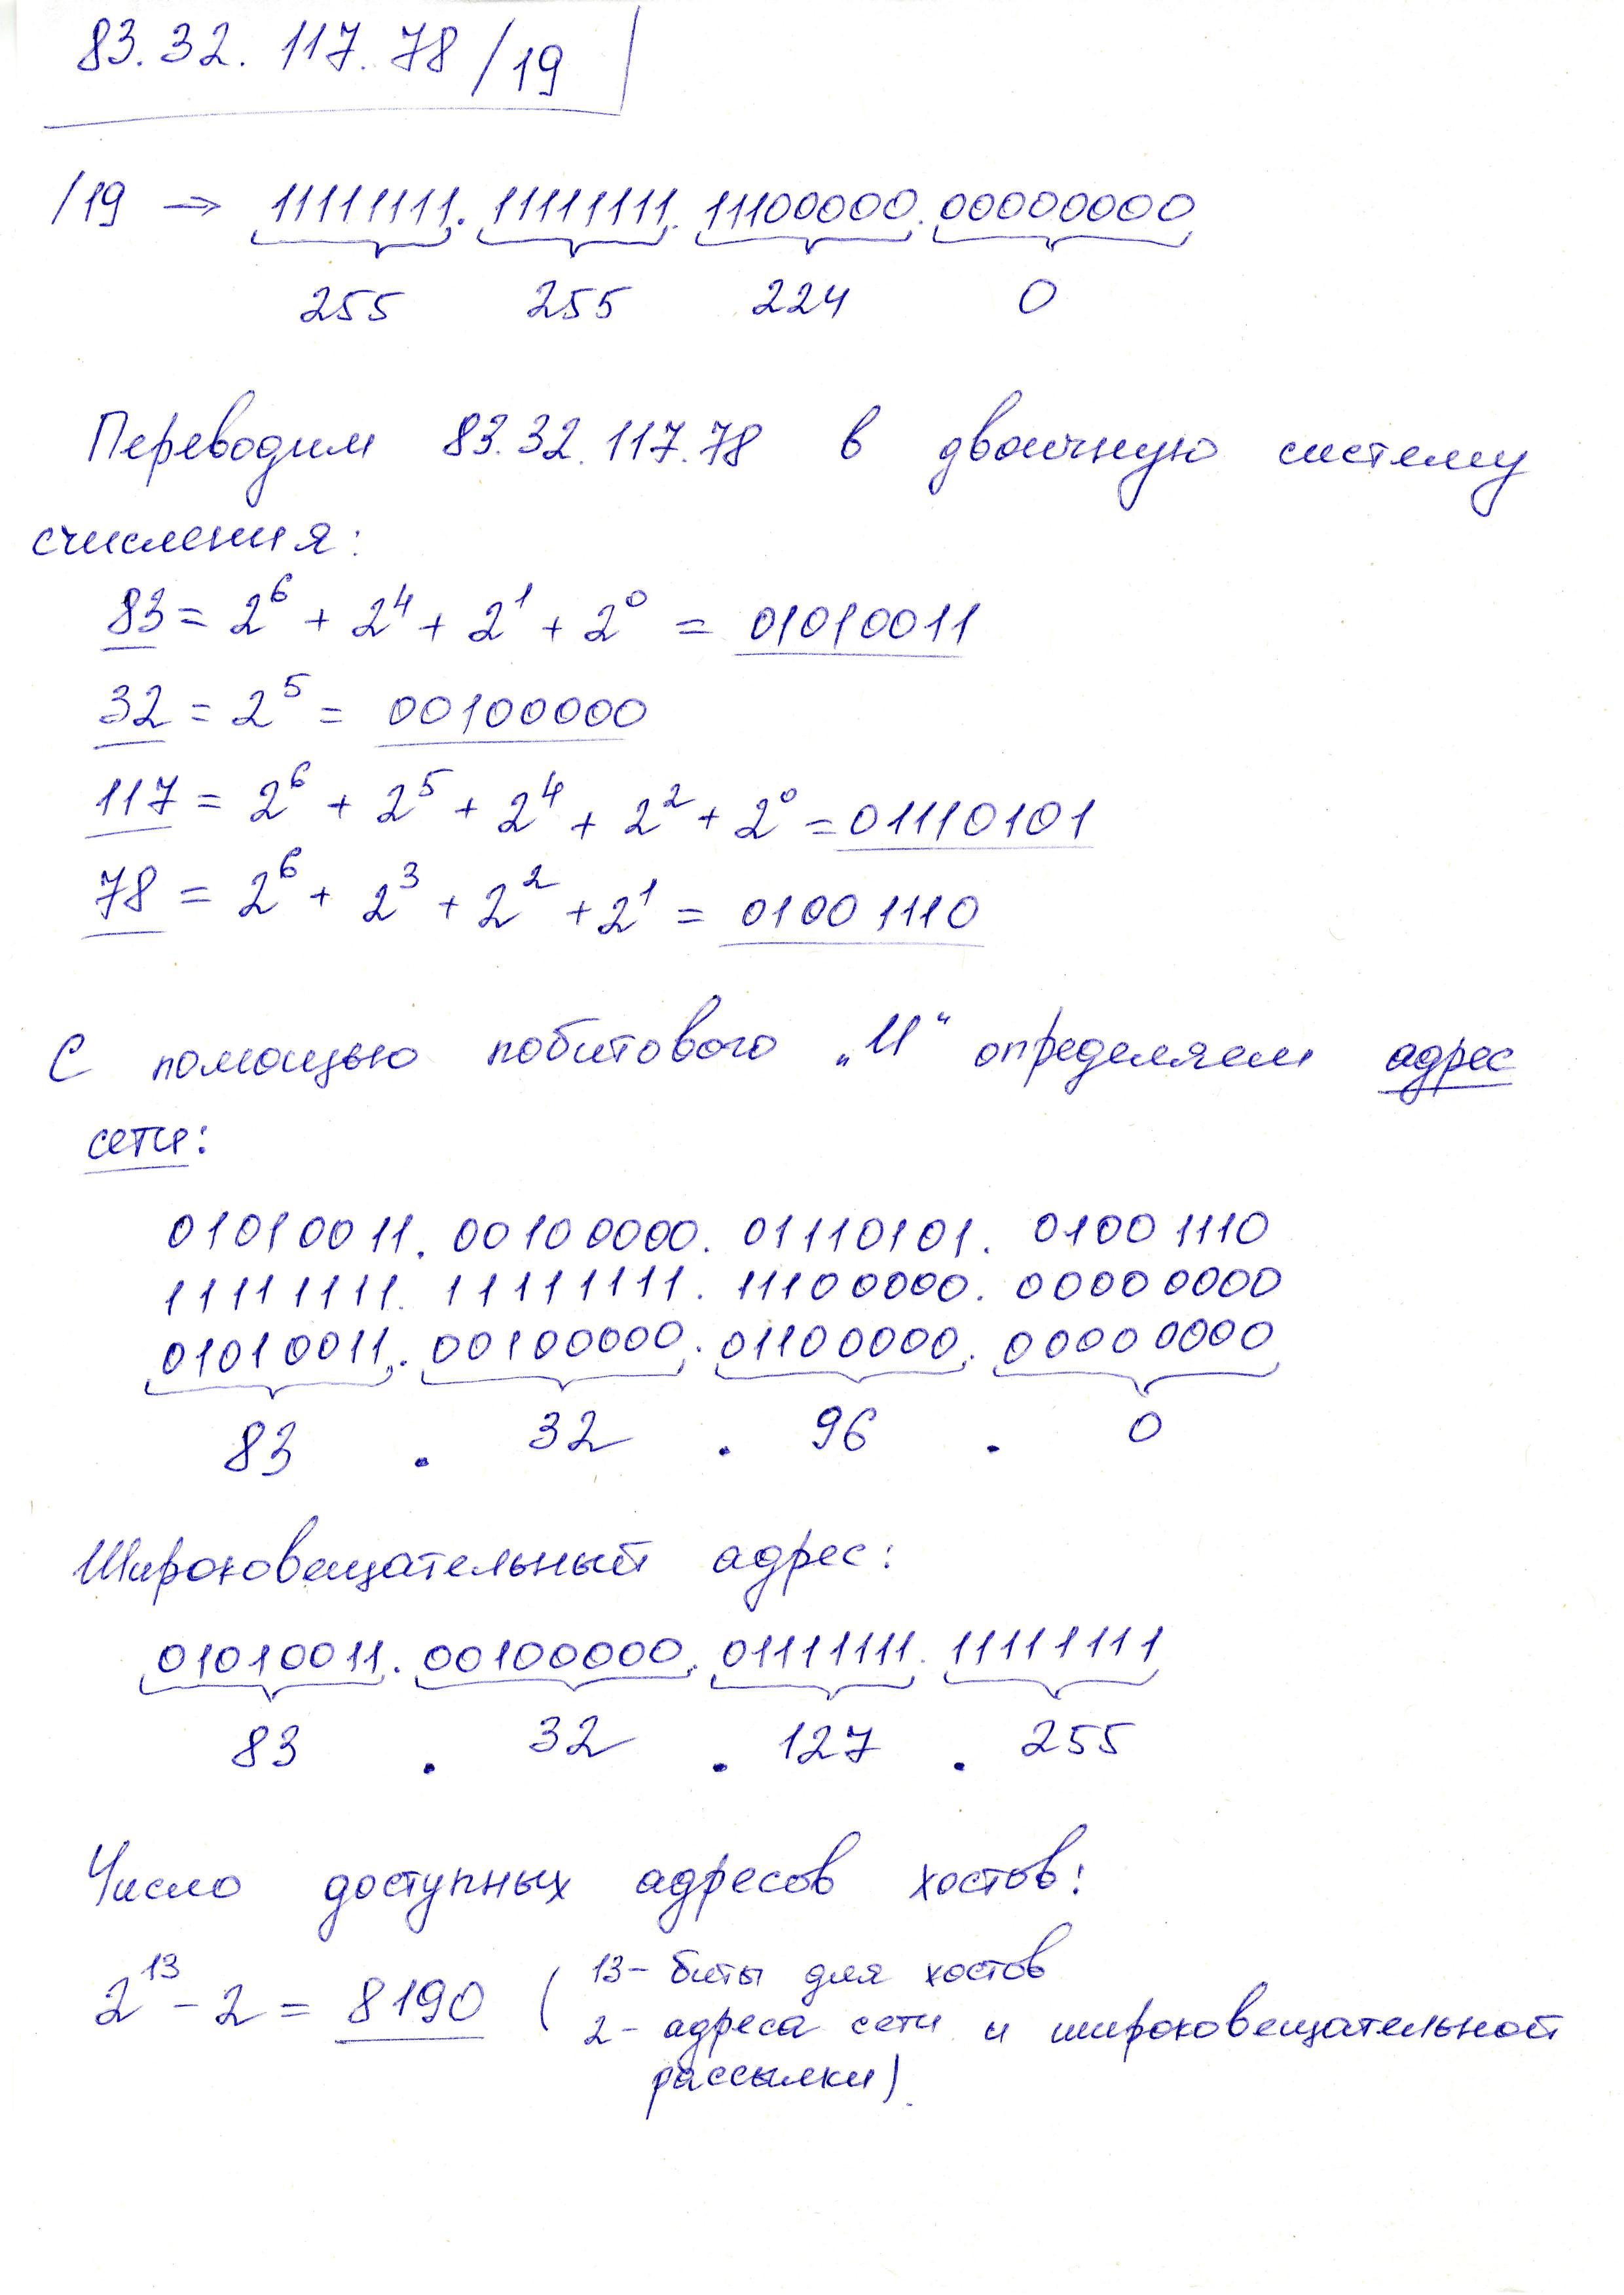 83.32.117.78/19
/19 → 11111111.11111111.11100000.00000000
255 255 224 0
Переводим 83.32.117.78 в двоичную систему
счисления:
83 = 2⁶ + 2⁴ + 2¹ + 2⁰ = 01010011
32 = 2⁵ = 00100000
117 = 2⁶ + 2⁵ + 2⁴ + 2² + 2⁰ = 01110101
78 = 2⁶ + 2³ + 2² + 2¹ = 01001110
С помощью побитового „И“ определяем адрес
сети:
01010011.00100000.01110101.01001110
11111111.11111111.11100000.00000000
01010011.00100000.01100000.00000000
83 . 32 . 96 . 0
Широковещательный адрес:
01010011.00100000.01111111.11111111
83 . 32 . 127 . 255
Число доступных адресов хостов:
2¹³ - 2 = 8190 (13 - биты для хостов
2 - адреса сети и широковещательной
рассылки).